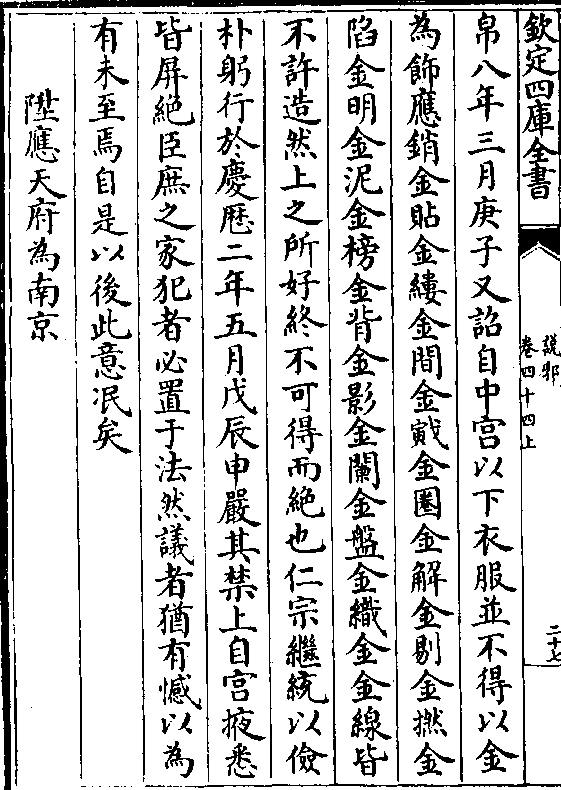 欽定四庫全書
說郛
卷四十四上
二十七
帛八年三月庚子又詔自中宮以下衣服並不得以金
為飾應銷金貼金縷金間金戭金圈金解金剔金撚金
陷金明金泥金榜金背金影金闌金盤金織金金線皆
不許造然上之所好終不可得而絶也仁宗繼統以儉
朴躬行於慶厯二年五月戊辰申嚴其禁上自宮掖悉
皆屏絶臣庶之家犯者必置于法然議者猶有憾以為
有未至焉自是以後此意泯矣
陞應天府為南京